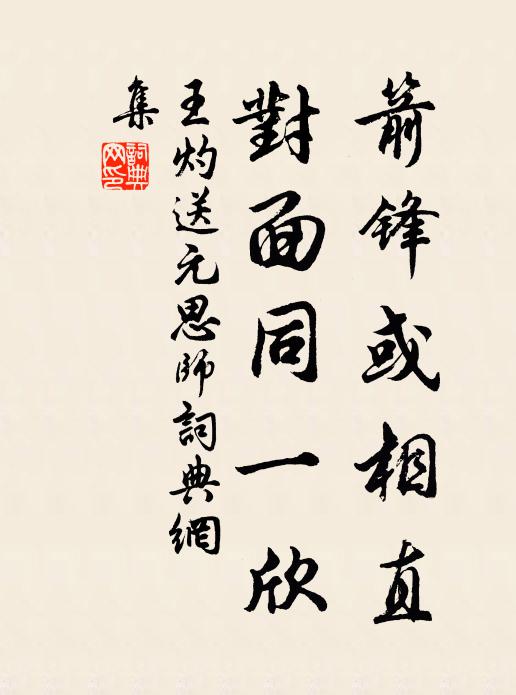 箭鋒或相直
對面同一欣
王灼送元思師詞典網
集
詞典
网印